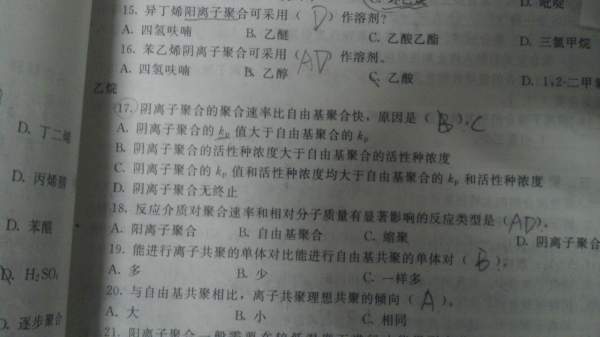 D. 吡啶
15. 异丁烯阳离子聚合可采用( D )作溶剂?
A. 四氢呋喃 B. 乙醚 C. 乙酸乙酯 D. 三氯甲烷
16. 苯乙烯阴离子聚合可采用( AD )作溶剂。
A. 四氢呋喃 B. 乙醇 C. 乙酸 D. 1,2-二甲
乙烷
17. 阴离子聚合的聚合速率比自由基聚合快,原因是( B )。C
A. 阴离子聚合的 kp 值大于自由基聚合的 kp
B. 阴离子聚合的活性种浓度大于自由基聚合的活性种浓度
C. 阴离子聚合的 kp 值和活性种浓度均大于自由基聚合的 kp 和活性种浓度
D. 阴离子聚合无终止
18. 反应介质对聚合速率和相对分子质量有显著影响的反应类型是( AD )。
A. 阳离子聚合 B. 自由基聚合 C. 缩聚 D. 阴离子聚合
19. 能进行离子共聚的单体对比能进行自由基共聚的单体对( B )。
A. 多 B. 少 C. 一样多
20. 与自由基共聚相比,离子共聚理想共聚的倾向( A )。
A. 大 B. 小 C. 相同
21. 阳离子聚合一般需要在较低温度下进行
D. 丁二烯
D. 丙烯腈
D. 苯醌
D. H2SO4
D. 逐步聚合